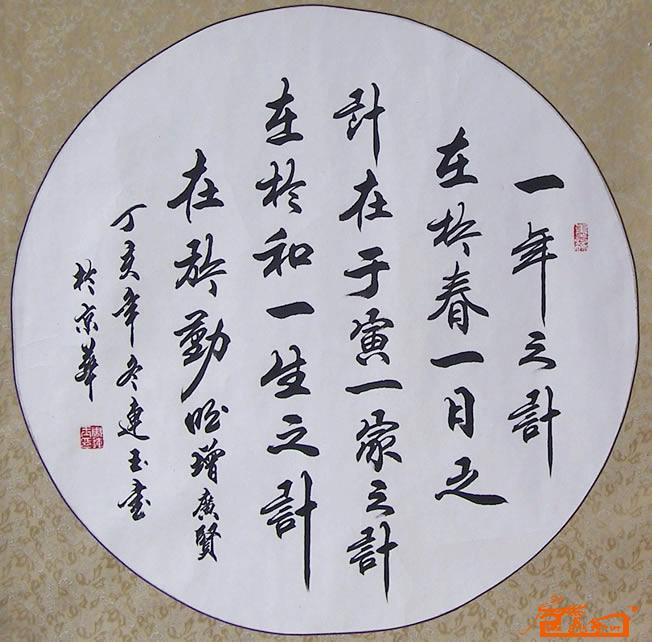 一年之計
在於春一日之
計在于寅一家之計
在於和一生之計
在於勤 昭增廣賢
丁亥年冬連玉書
於京華